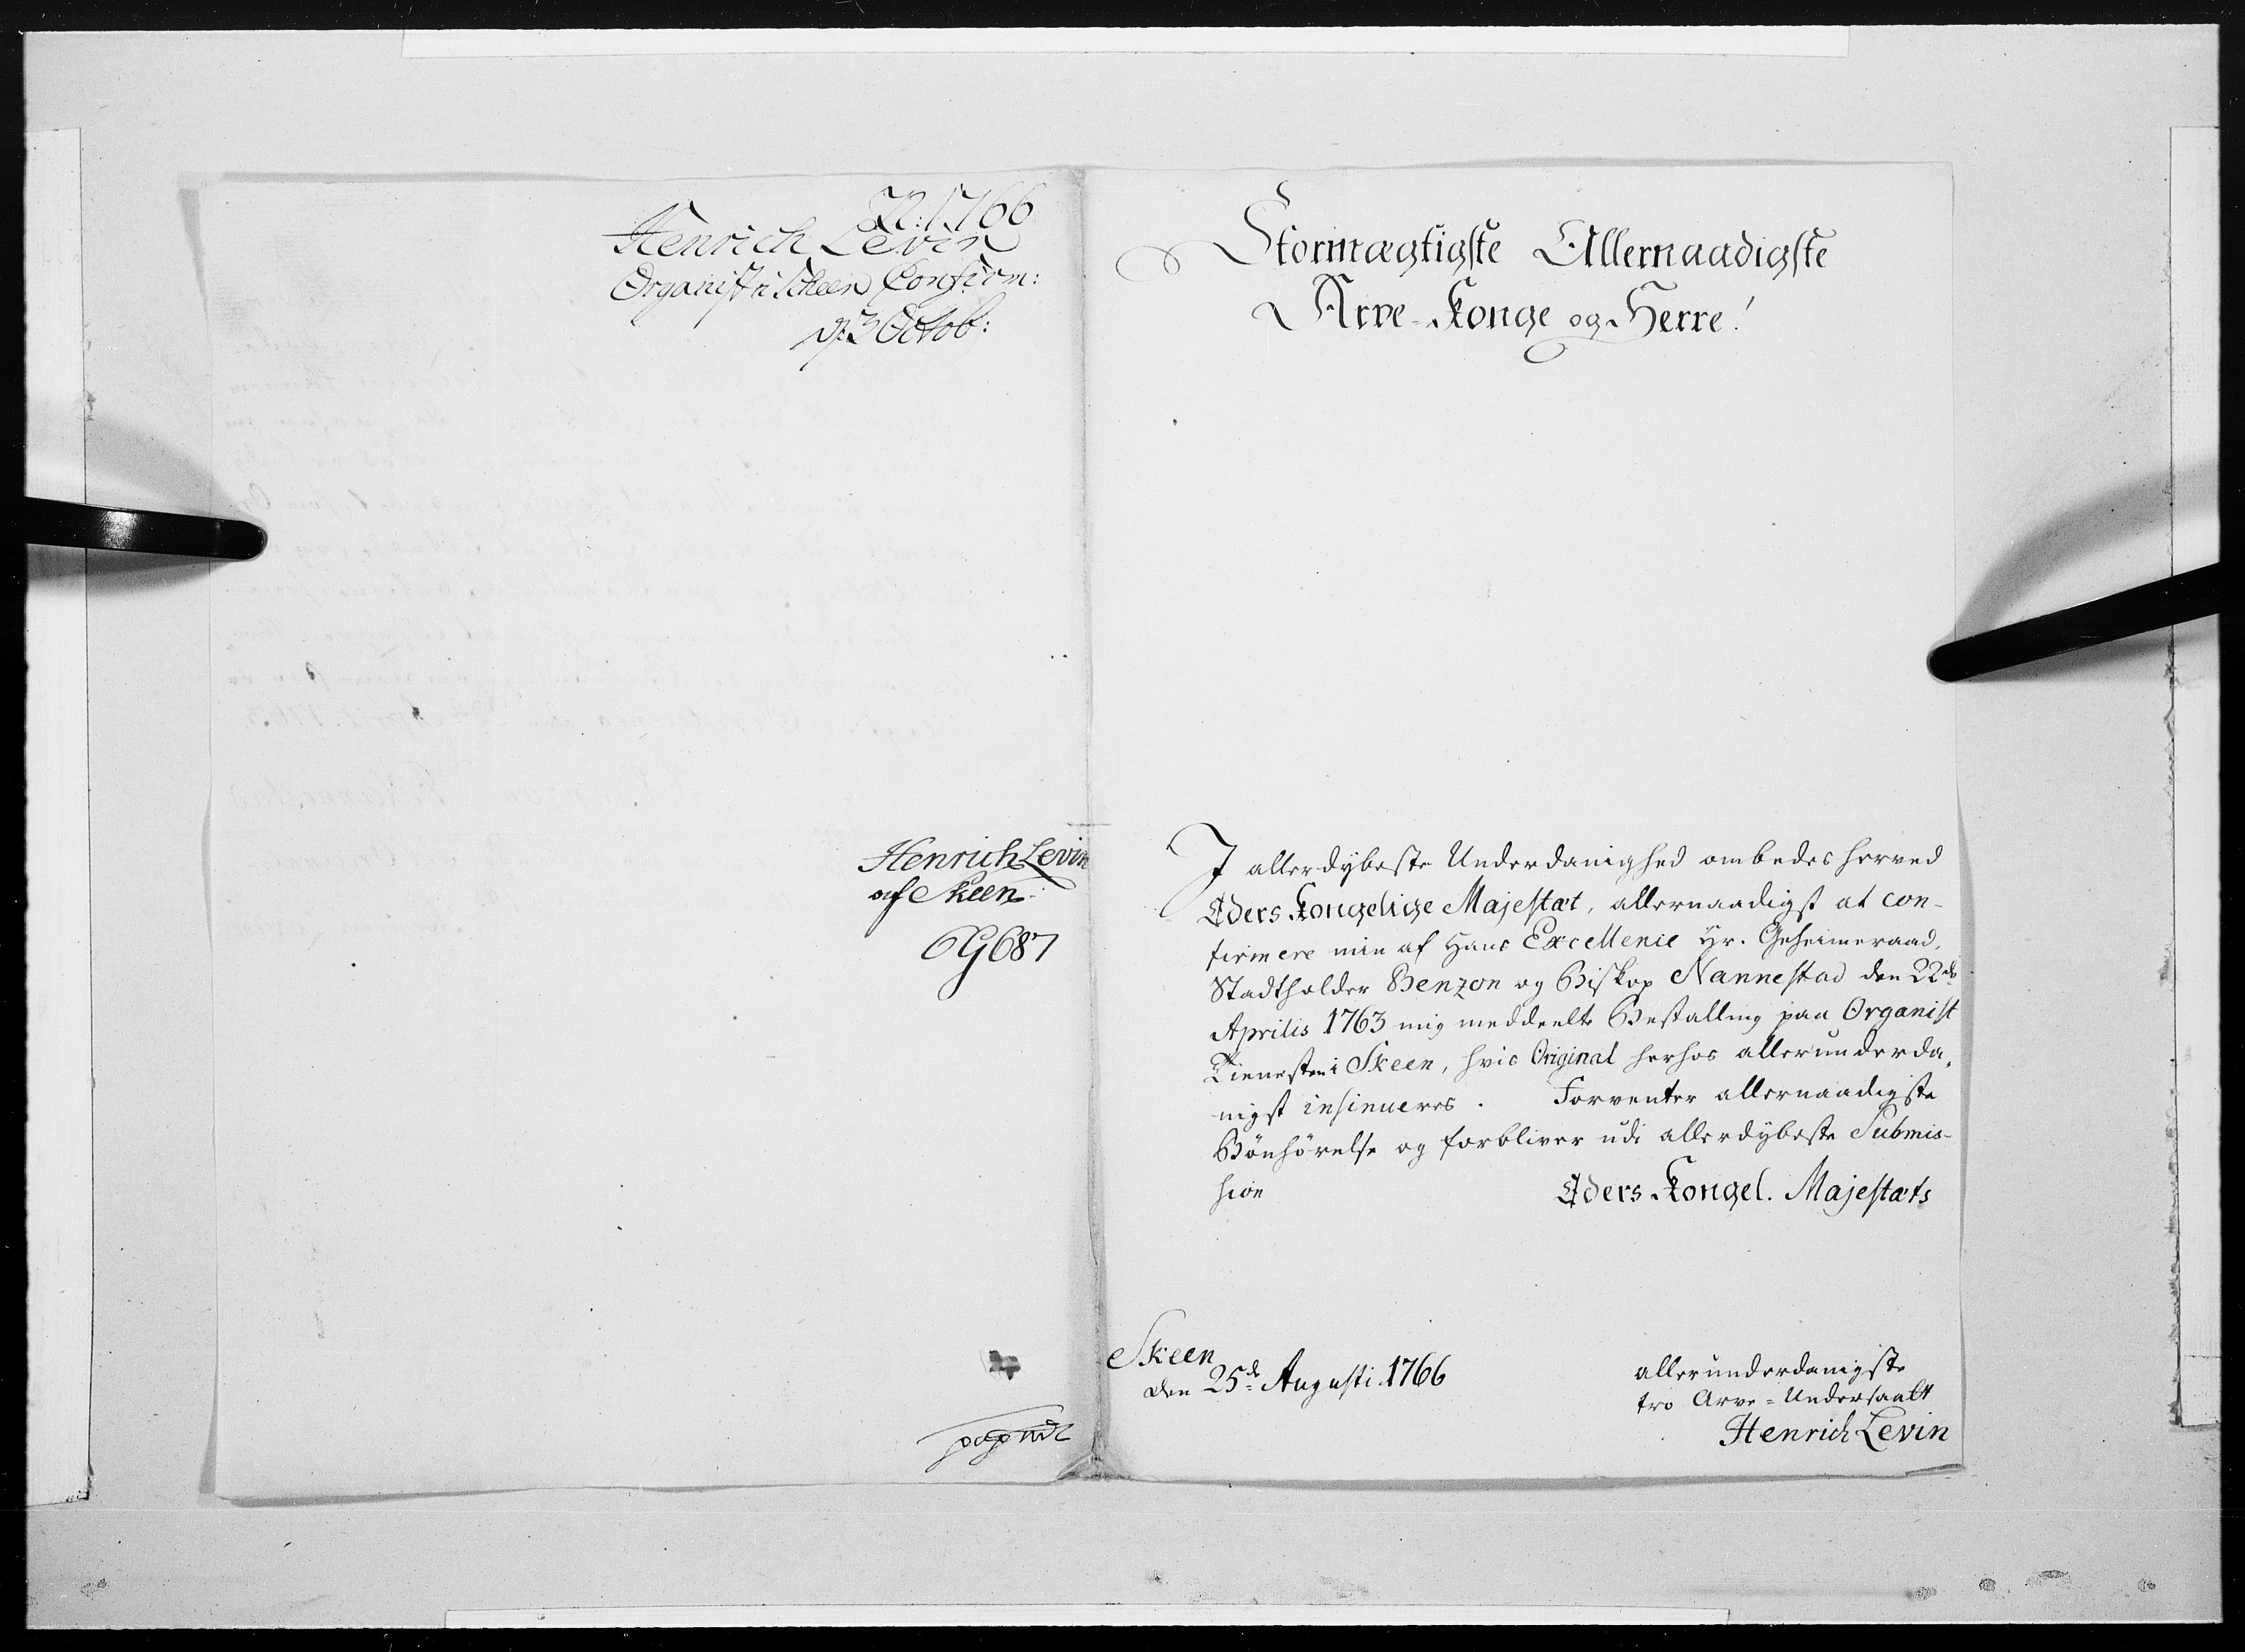 N: 1766
Henrich Levin
Organist i Scheen Confirm:
d: 3 Octob:
Henrich Levin
af Skeen
6G687
Stormægtigste Allernaadigste
Arve-Konge og Herre!
I allerdybeste Underdanighed ombedes herved
Eders Kongelige Majestæt, allernaadigst at con-
firmere min af Hans Excellence Hr. Geheimeraad,
Stadtholder Benzon og Biskop Nannestad den 22de
Aprilis 1763 mig meddeelte Bestalling paa Organist
Tienesten i Skeen, hvis Original herhos allerunderda-
nigst insinueres. Forventer allernaadigste
Bönhörelse og forbliver udi allerdybeste Submis-
sion
Eders Kongel. Majestæts
Skeen
den 25de Augusti 1766
allerunderdanigste
tro Arve-Undersaatt
Henrich Levin